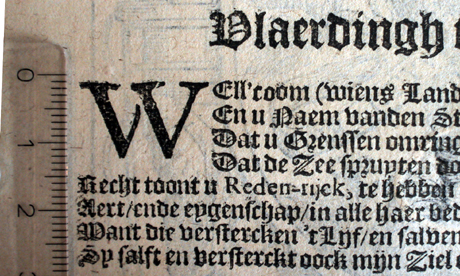 Vlaerdingh t
WEll'coom (wiens Land
En u Naem vanden St
Dat u Grenssen omring
Dat de Zee spruyten do
Recht toont u Reden-rijck, te hebben
Aert/ende eygenschap/in alle haer bed
Want die verstercken 't Lyf/en salven
Sy salft en versterckt oock mijn Ziel e
0
1
2